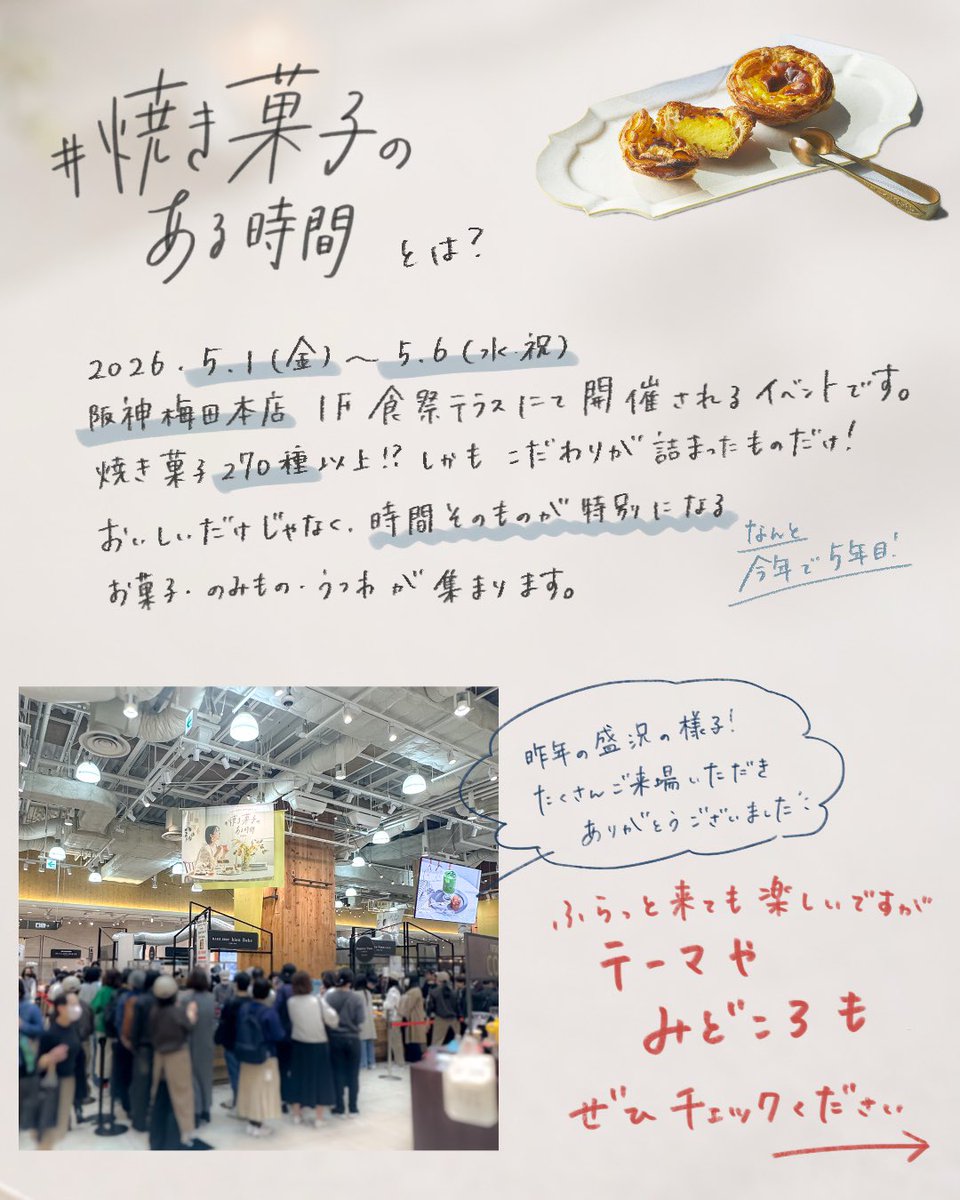 #焼き菓子の
ある時間
とは?
2026.5.1(金)~5.6(水・祝)
阪神梅田本店 1F 食祭テラスにて開催されるイベントです。
焼き菓子270種以上!? しかもこだわりが詰まったものだけ!
おいしいだけじゃなく、時間そのものが特別になる
お菓子・のみもの・うつわが集まります。
なんと
今年で5年目!
昨年の盛況の様子!
たくさんご来場いただき
ありがとうございました
焼き菓子の
ある時間
ふらっと来ても楽しいですが
テーマや
みどころも
ぜひチェックください